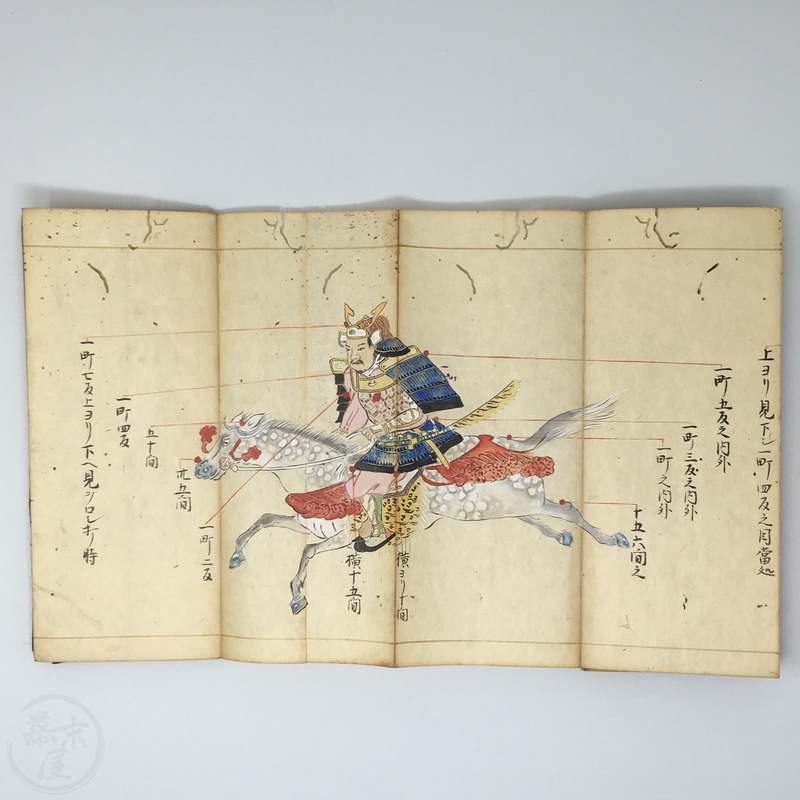 上ヨリ見下シ一町四反之目當処
一町五反之内外
一町三反之内外
一町之内外
十五六間之
横ヨリ十間
横十五間
一町二反
卅五間
五十間
一町四反
一町七反上ヨリ下ヘ見シロシキノ時
幕末屋